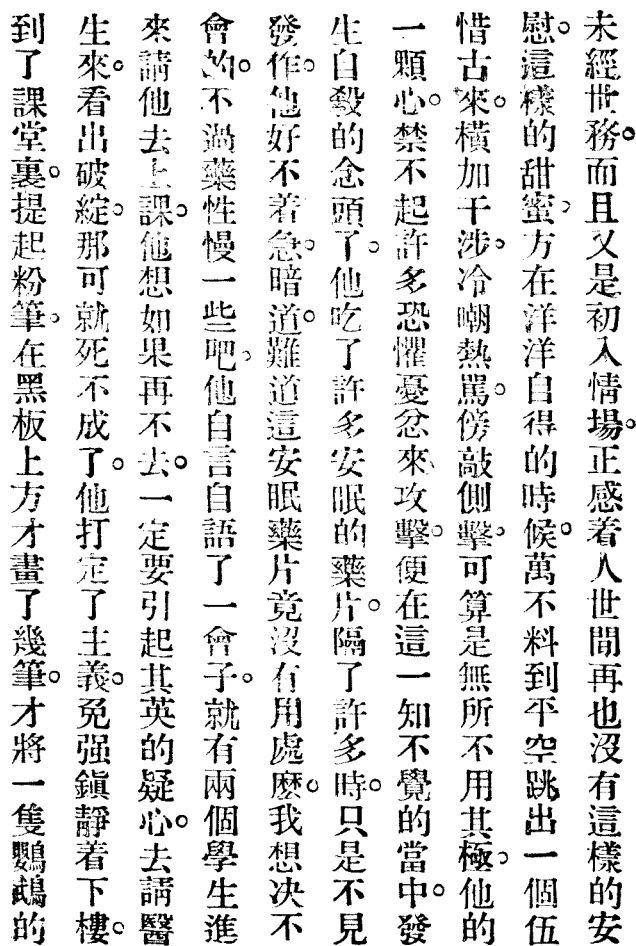 未經世務。而且又是初入情場。正感着人世間再也沒有這樣的安
慰。這樣的甜蜜。方在洋洋自得的時候。萬不料到平空跳出一個伍
惜古來。橫加干涉。冷嘲熱罵。傍敲側擊。可算是無所不用其極。他的
一顆心。禁不起許多恐懼憂忿來攻擊。便在這一知不覺的當中。發
生自殺的念頭了。他吃了許多安眠的藥片。隔了許多時。只是不見
發作。他好不着急。暗道。難道這安眠藥片竟沒有用處麽。我想决不
會的。不過藥性慢一些吧。他自言自語了一會子。就有兩個學生進
來請他去上課。他想如果再不去。一定要引起其英的疑心。去請醫
生來。看出破綻。那可就死不成了。他打定了主義。免强鎭靜着下樓。
到了課堂裏。提起粉筆。在黑板上方才畫了幾筆。才將一隻鸚鵡的